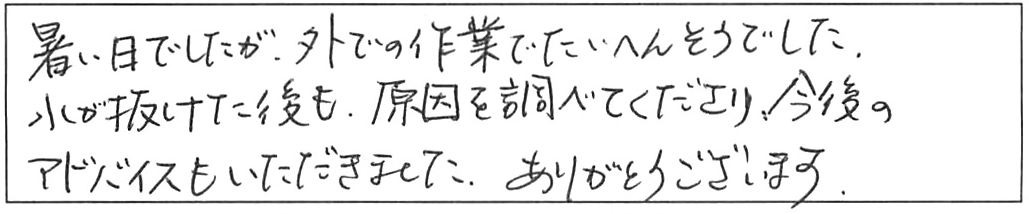 暑い日でしたが、外での作業でたいへんそうでした。
水が抜けた後も、原因を調べてくださり、今後の
アドバイスもいただきました。ありがとうございます。